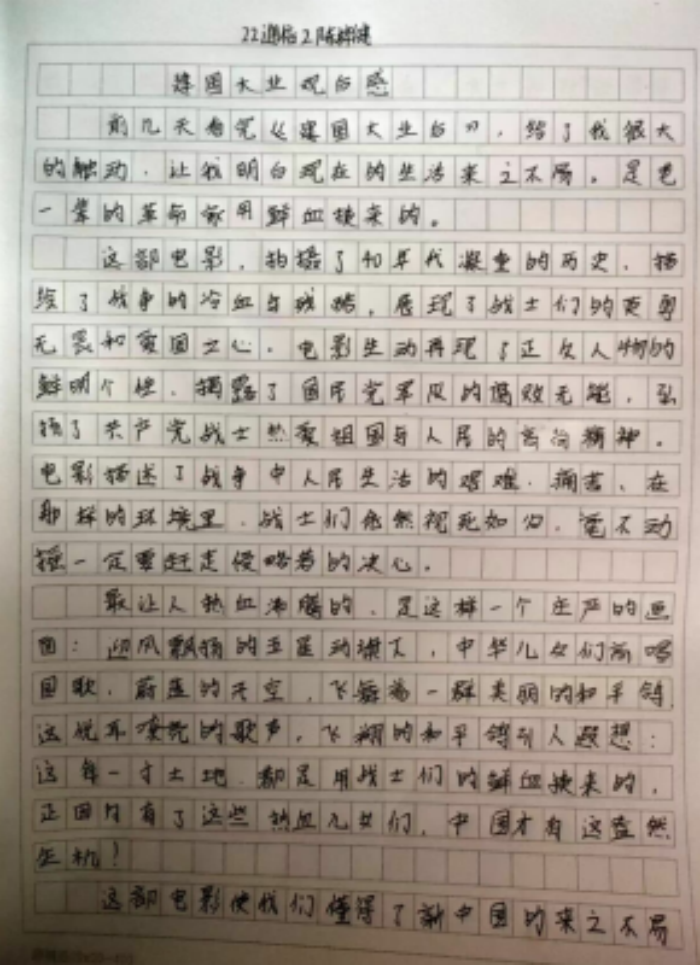 22通信2陈
建国大业观后感
前几天看完《建国大业后》，给了我很大
的触动，让我明白现在的生活来之不易，是老
一辈的革命家用鲜血换来的。
这部电影，拍摄了40年代凝重的历史，描
绘了战争的冷血与残酷，展现了战士们的英勇
无畏和爱国之心。电影生动再现了正反人物的
鲜明个性，揭露了国民党军队的腐败无能，弘
扬了共产党战士热爱祖国与人民的高尚精神。
电影描述了战争中人民生活的艰难、痛苦，在
那样的环境里，战士们依然视死如归，毫不动
摇一定要赶走侵略者的决心。
最让人热血沸腾的，是这样一个庄严的画
面：迎风飘扬的五星动旗下，中华儿女们高唱
国歌，蔚蓝的天空，飞舞着一群美丽的和平鸽，
这悦耳嘹亮的歌声，飞翔的和平鸽引人遐想：
这每一寸土地，都是用战士们的鲜血换来的，
正因为有了这些热血儿女们，中国才有这盎然
生机！
这部电影使我们懂得了新中国的来之不易